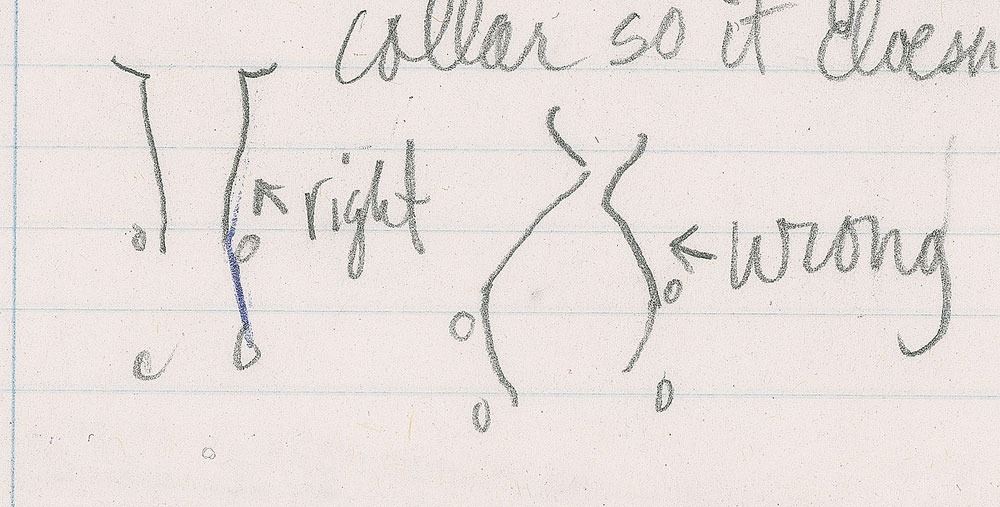 collar so it doesn
right
wrong